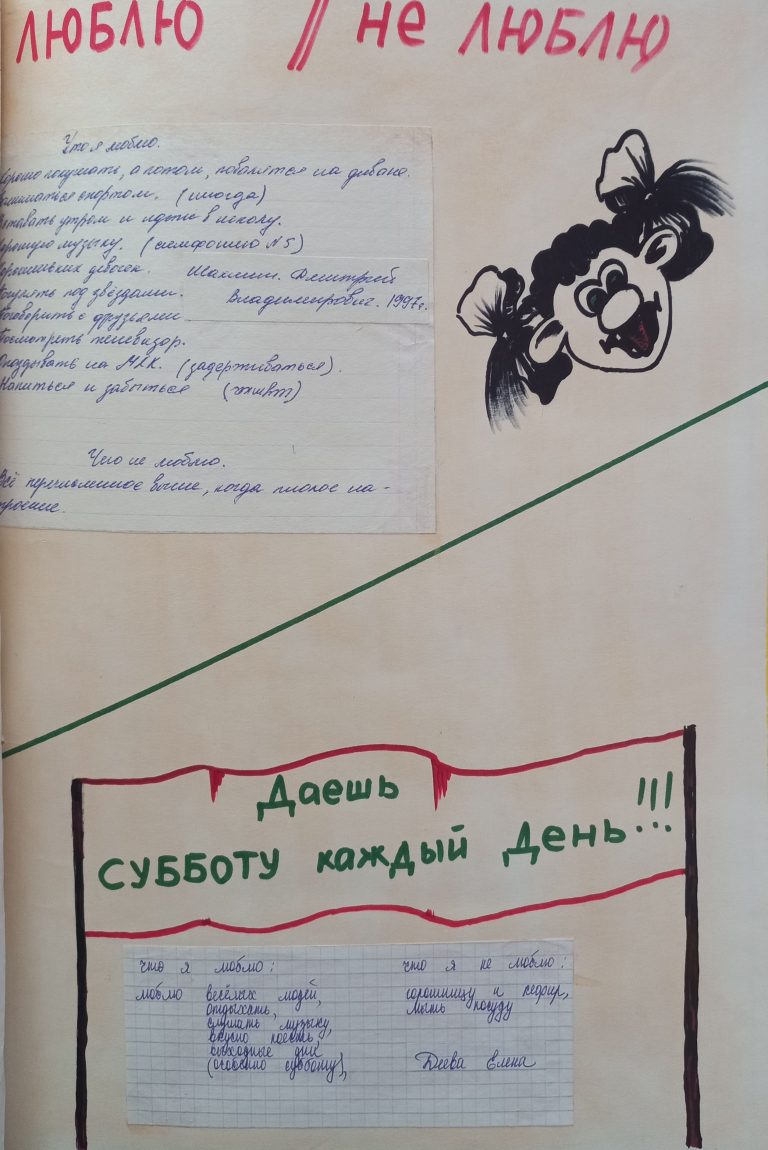 ЛЮБЛЮ // не ЛЮБЛЮ
Что я люблю.
хорошо покушать, а потом, поваляться на диване.
заниматься спортом. (иногда)
Вставать утром и идти в школу.
хорошую музыку. (симфонию №5)
хорошеньких девочек.
Погулять под звёздами.
Поговорить с друзьями
Посмотреть телевизор.
Опаздывать на МХК. (задерживаться).
Напиться и забыться
Дмитрий
Владимирович. 1997г.
Что не люблю.
Всё перечисленное выше, когда плохое на-
троение.
Даешь
СУББОТУ каждый День!!!
что я люблю:
люблю весёлых людей,
отдыхать,
слушать музыку,
вкусно поесть,
выходные дни
(особенно субботу),
что я не люблю:
горошницу и кефир,
мыть посуду
Деева Елена